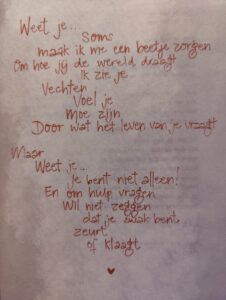 Weet je...
Soms
maak ik me een beetje zorgen
Om hoe jij de wereld draagt
Ik zie je
Vechten
Voel je
Moe zijn
Door wat het leven van je vraagt
Maar
Weet je...
Je bent niet alleen!
En om hulp vragen
Wil niet zeggen
dat je zwak bent
zeurt
of klaagt